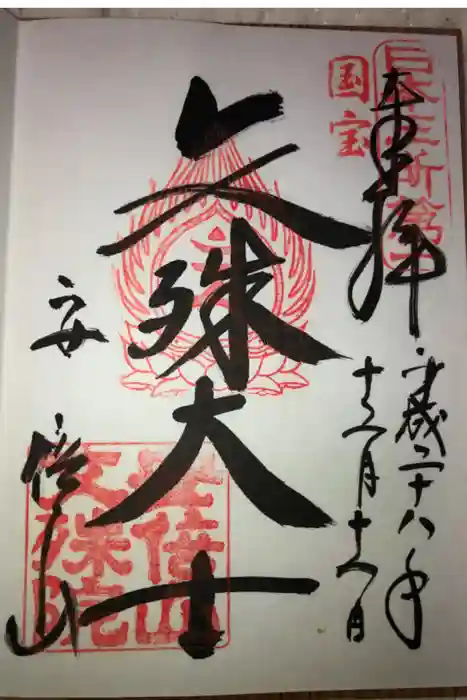 国宝
日本三所
奉拝
平成二十八年
月 日
文殊大士
安倍山
安倍山
文殊院